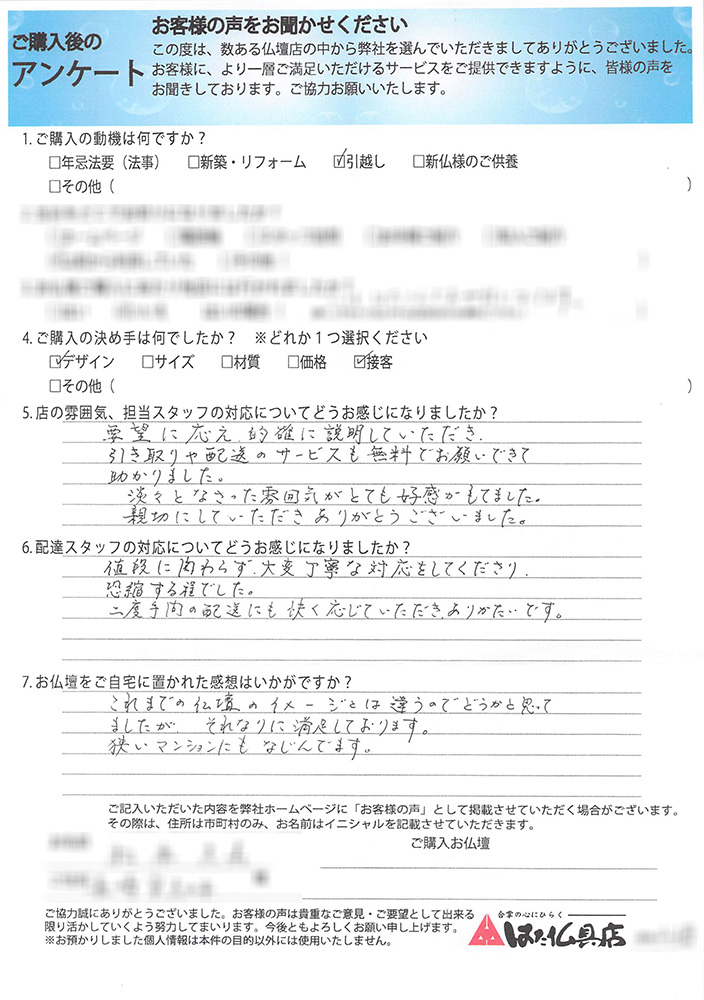 ご購入後の
アンケート
お客様の声をお聞かせください
この度は、数ある仏壇店の中から弊社を選んでいただきましてありがとうございました。
お客様に、より一層ご満足いただけるサービスをご提供できますように、皆様の声を
お聞きしております。ご協力お願いいたします。
1.ご購入の動機は何ですか？
□年忌法要（法事） □新築・リフォーム ☑引越し □新仏様のご供養
□その他（ ）
4.ご購入の決め手は何でしたか？ ※どれか１つ選択ください
☑デザイン □サイズ □材質 □価格 ☑接客
□その他（ ）
5.店の雰囲気、担当スタッフの対応についてどうお感じになりましたか？
要望に応え、的確に説明していただき、
引き取りや配送のサービスも無料でお願いできて
助かりました。
淡々となさった雰囲気がとても好感がもてました。
親切にしていただきありがとうございました。
6.配達スタッフの対応についてどうお感じになりましたか？
値段に関わらず、大変丁寧な対応をしてくださり、
恐縮する程でした。
二度手間の配送にも快く応じていただき、ありがたいです。
7.お仏壇をご自宅に置かれた感想はいかがですか？
これまでの仏壇のイメージとは違うのでどうかと思って
ましたが、それなりに満足しております。
狭いマンションにもなじんでます。
ご記入いただいた内容を弊社ホームページに「お客様の声」として掲載させていただく場合がございます。
その際は、住所は市町村のみ、お名前はイニシャルを記載させていただきます。
ご購入お仏壇
ご協力誠にありがとうございました。お客様の声は貴重なご意見・ご要望として出来る
限り活かしていくよう努力してまいります。今後ともよろしくお願い申し上げます。
※お預かりしました個人情報は本件の目的以外には使用いたしません。
合掌の心にひらく
はた仏具店